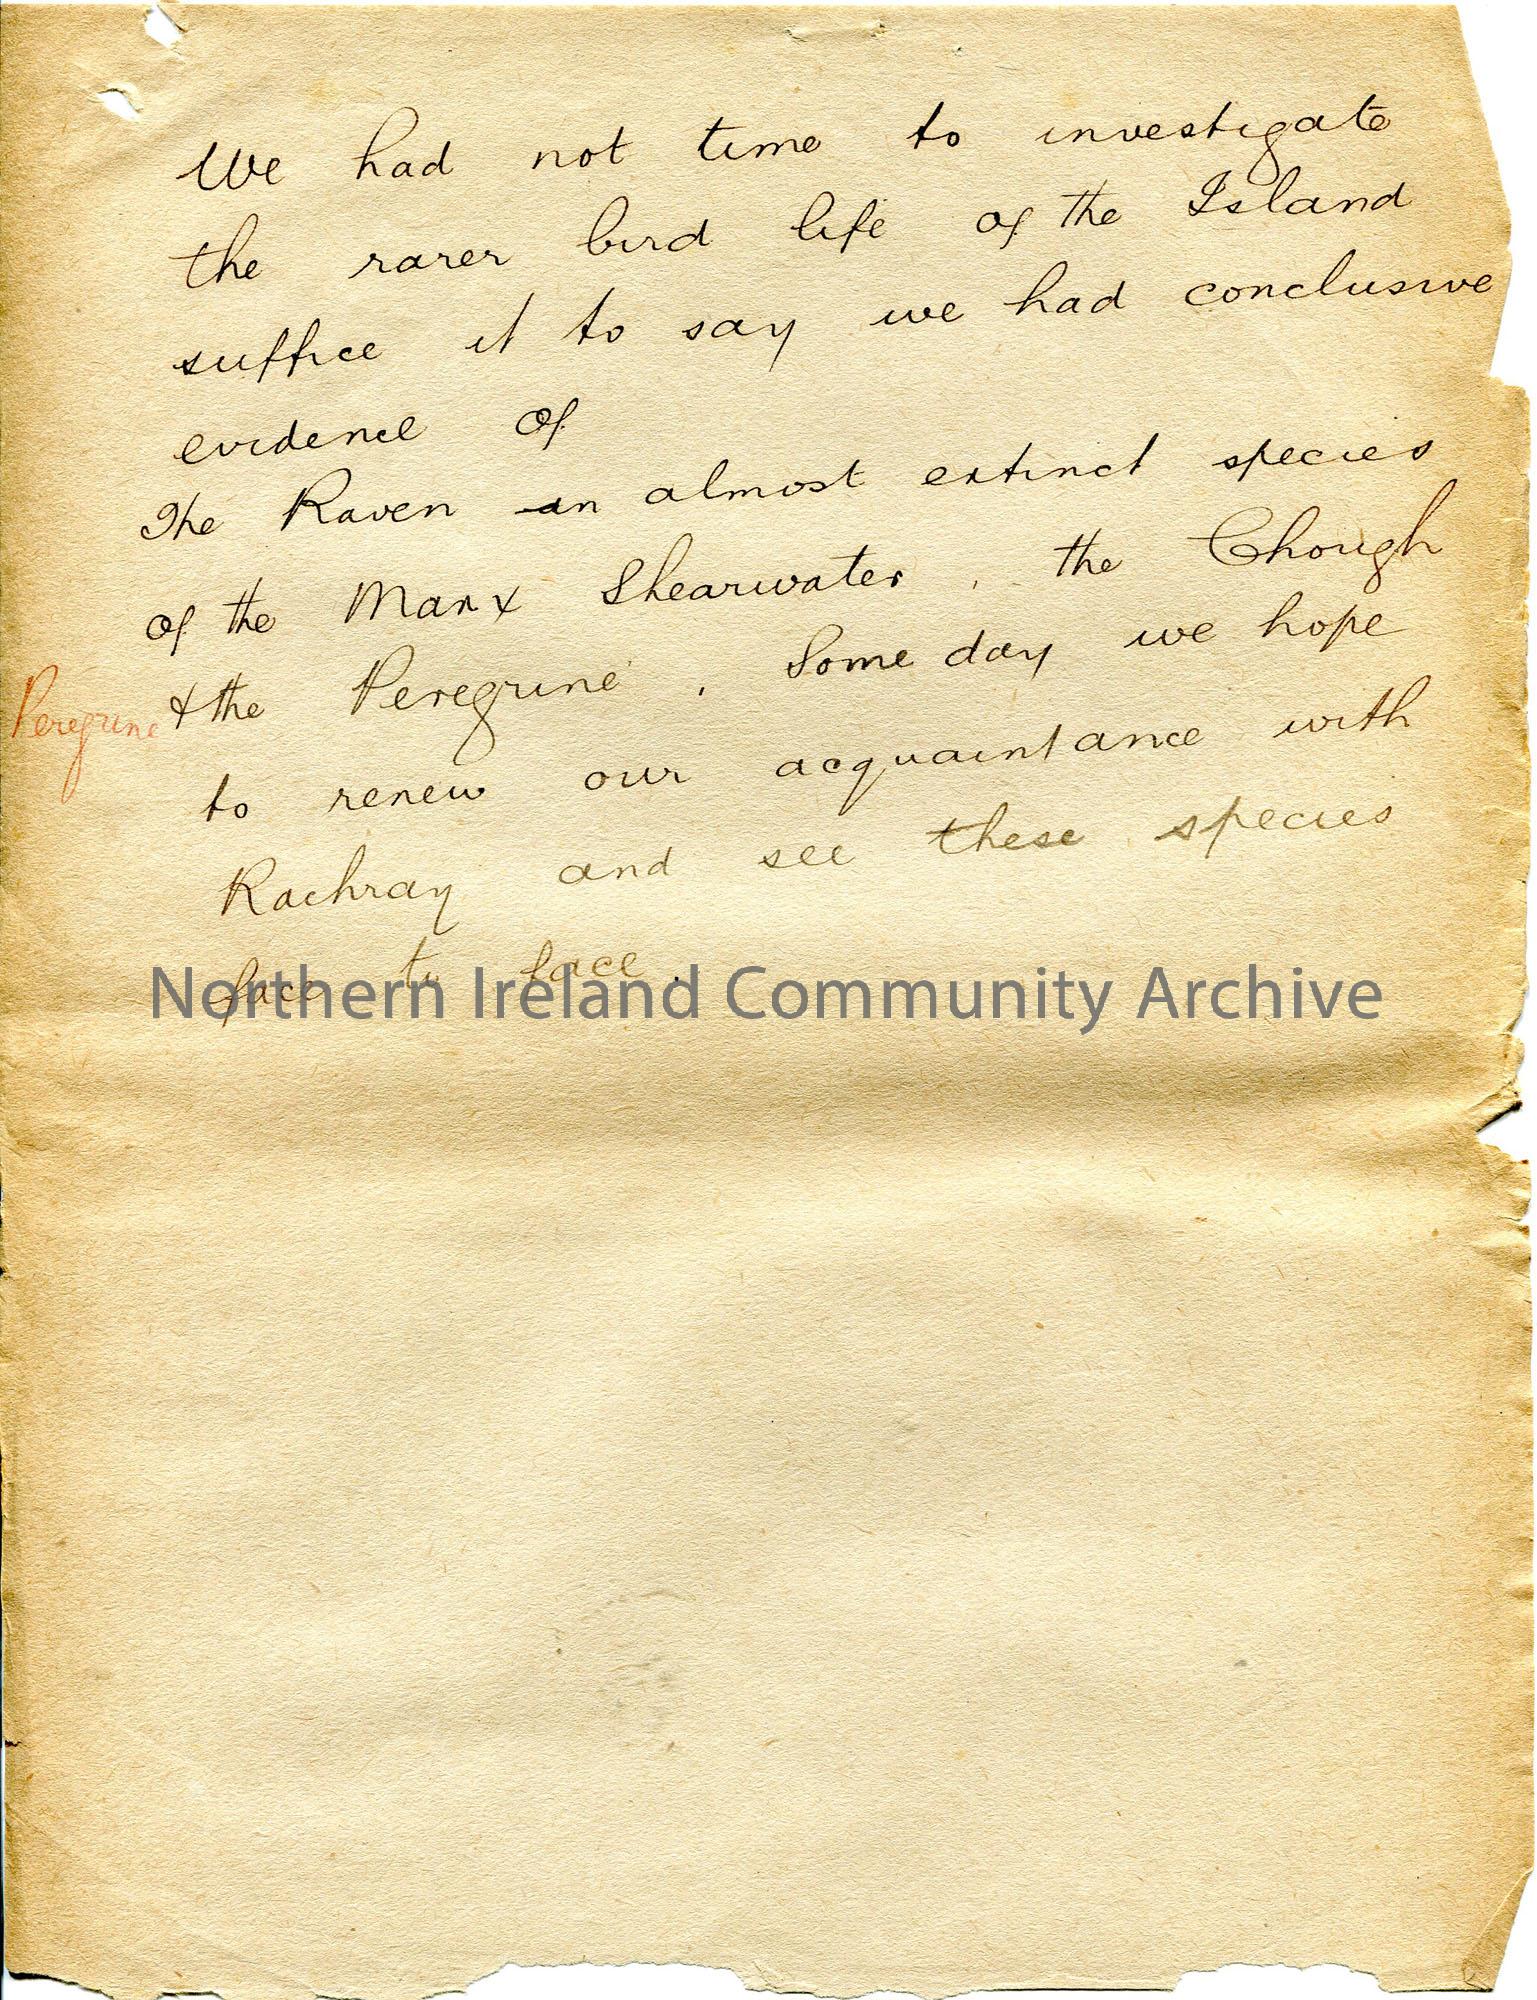 We had not time to investigate
the rarer bird life of the Island
suffice it to say we had conclusive
evidence of
The Raven an almost extinct species
of the Manx Shearwater, the Chough
Peregrine
& the Peregrine. Some day we hope
to renew our acquaintance with
Rachray and see these species
face to face.
Northern Ireland Community Archive